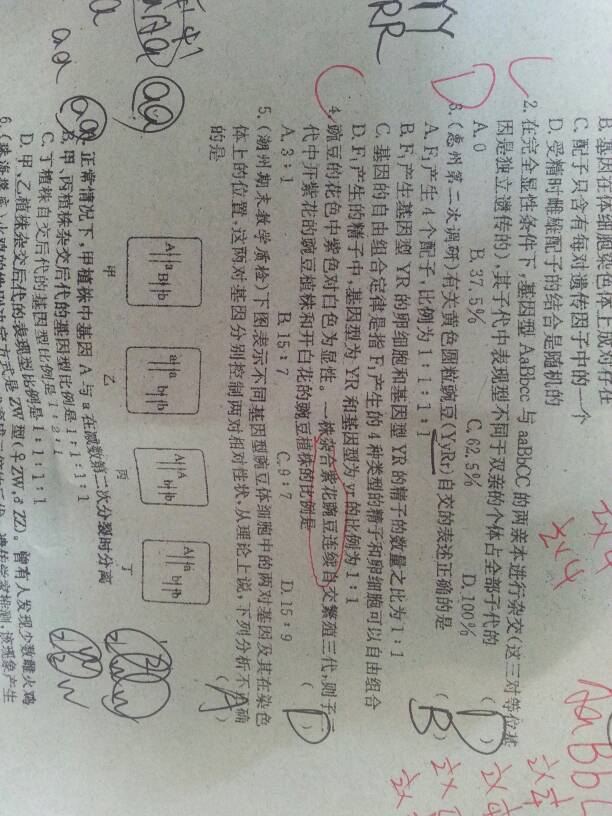 B. 基因在体细胞染色体上成对存在
C. 配子只含有每对遗传因子中的一个
D. 受精时雌雄配子的结合是随机的
2. 在完全显性条件下,基因型 AaBbcc 与 aaBbCC 的两亲本进行杂交(这三对等位基
因是独立遗传的),其子代中表现型不同于双亲的个体占全部子代的 ( D )
A. 0 B. 37.5% C. 62.5% D. 100%
3. (惠州第二次调研)有关黄色圆粒豌豆(YyRr)自交的表述正确的是 ( B )
A. F₁产生 4 个配子,比例为 1∶1∶1∶1
B. F₁产生基因型 YR 的卵细胞和基因型 YR 的精子的数量之比为 1∶1
C. 基因的自由组合定律是指 F₁产生的 4 种类型的精子和卵细胞可以自由组合
D. F₁产生的精子中,基因型为 YR 和基因型为 yr 的比例为 1∶1
4. 豌豆的花色中紫色对白色为显性。一株杂合紫花豌豆连续自交繁殖三代,则子
代中开紫花的豌豆植株和开白花的豌豆植株的比例是 ( D )
A. 3∶1 B. 15∶7 C. 9∶7 D. 15∶9
5. (潮州期末教学质检)下图表示不同基因型豌豆体细胞中的两对基因及其在染色
体上的位置,这两对基因分别控制两对相对性状,从理论上说,下列分析不正确
的是 ( A )
A a B b
甲
a a b b
乙
A A b b
丙
A a b b
丁
A. 正常情况下,甲植株中基因 A 与 a 在减数第二次分裂时分离
B. 甲、丙植株杂交后代的基因型比例是 1∶1∶1∶1
C. 丁植株自交后代的基因型比例是 1∶2∶1
D. 甲、乙植株杂交后代的表现型比例是 1∶1∶1∶1
YY
RR
aa
AaBb